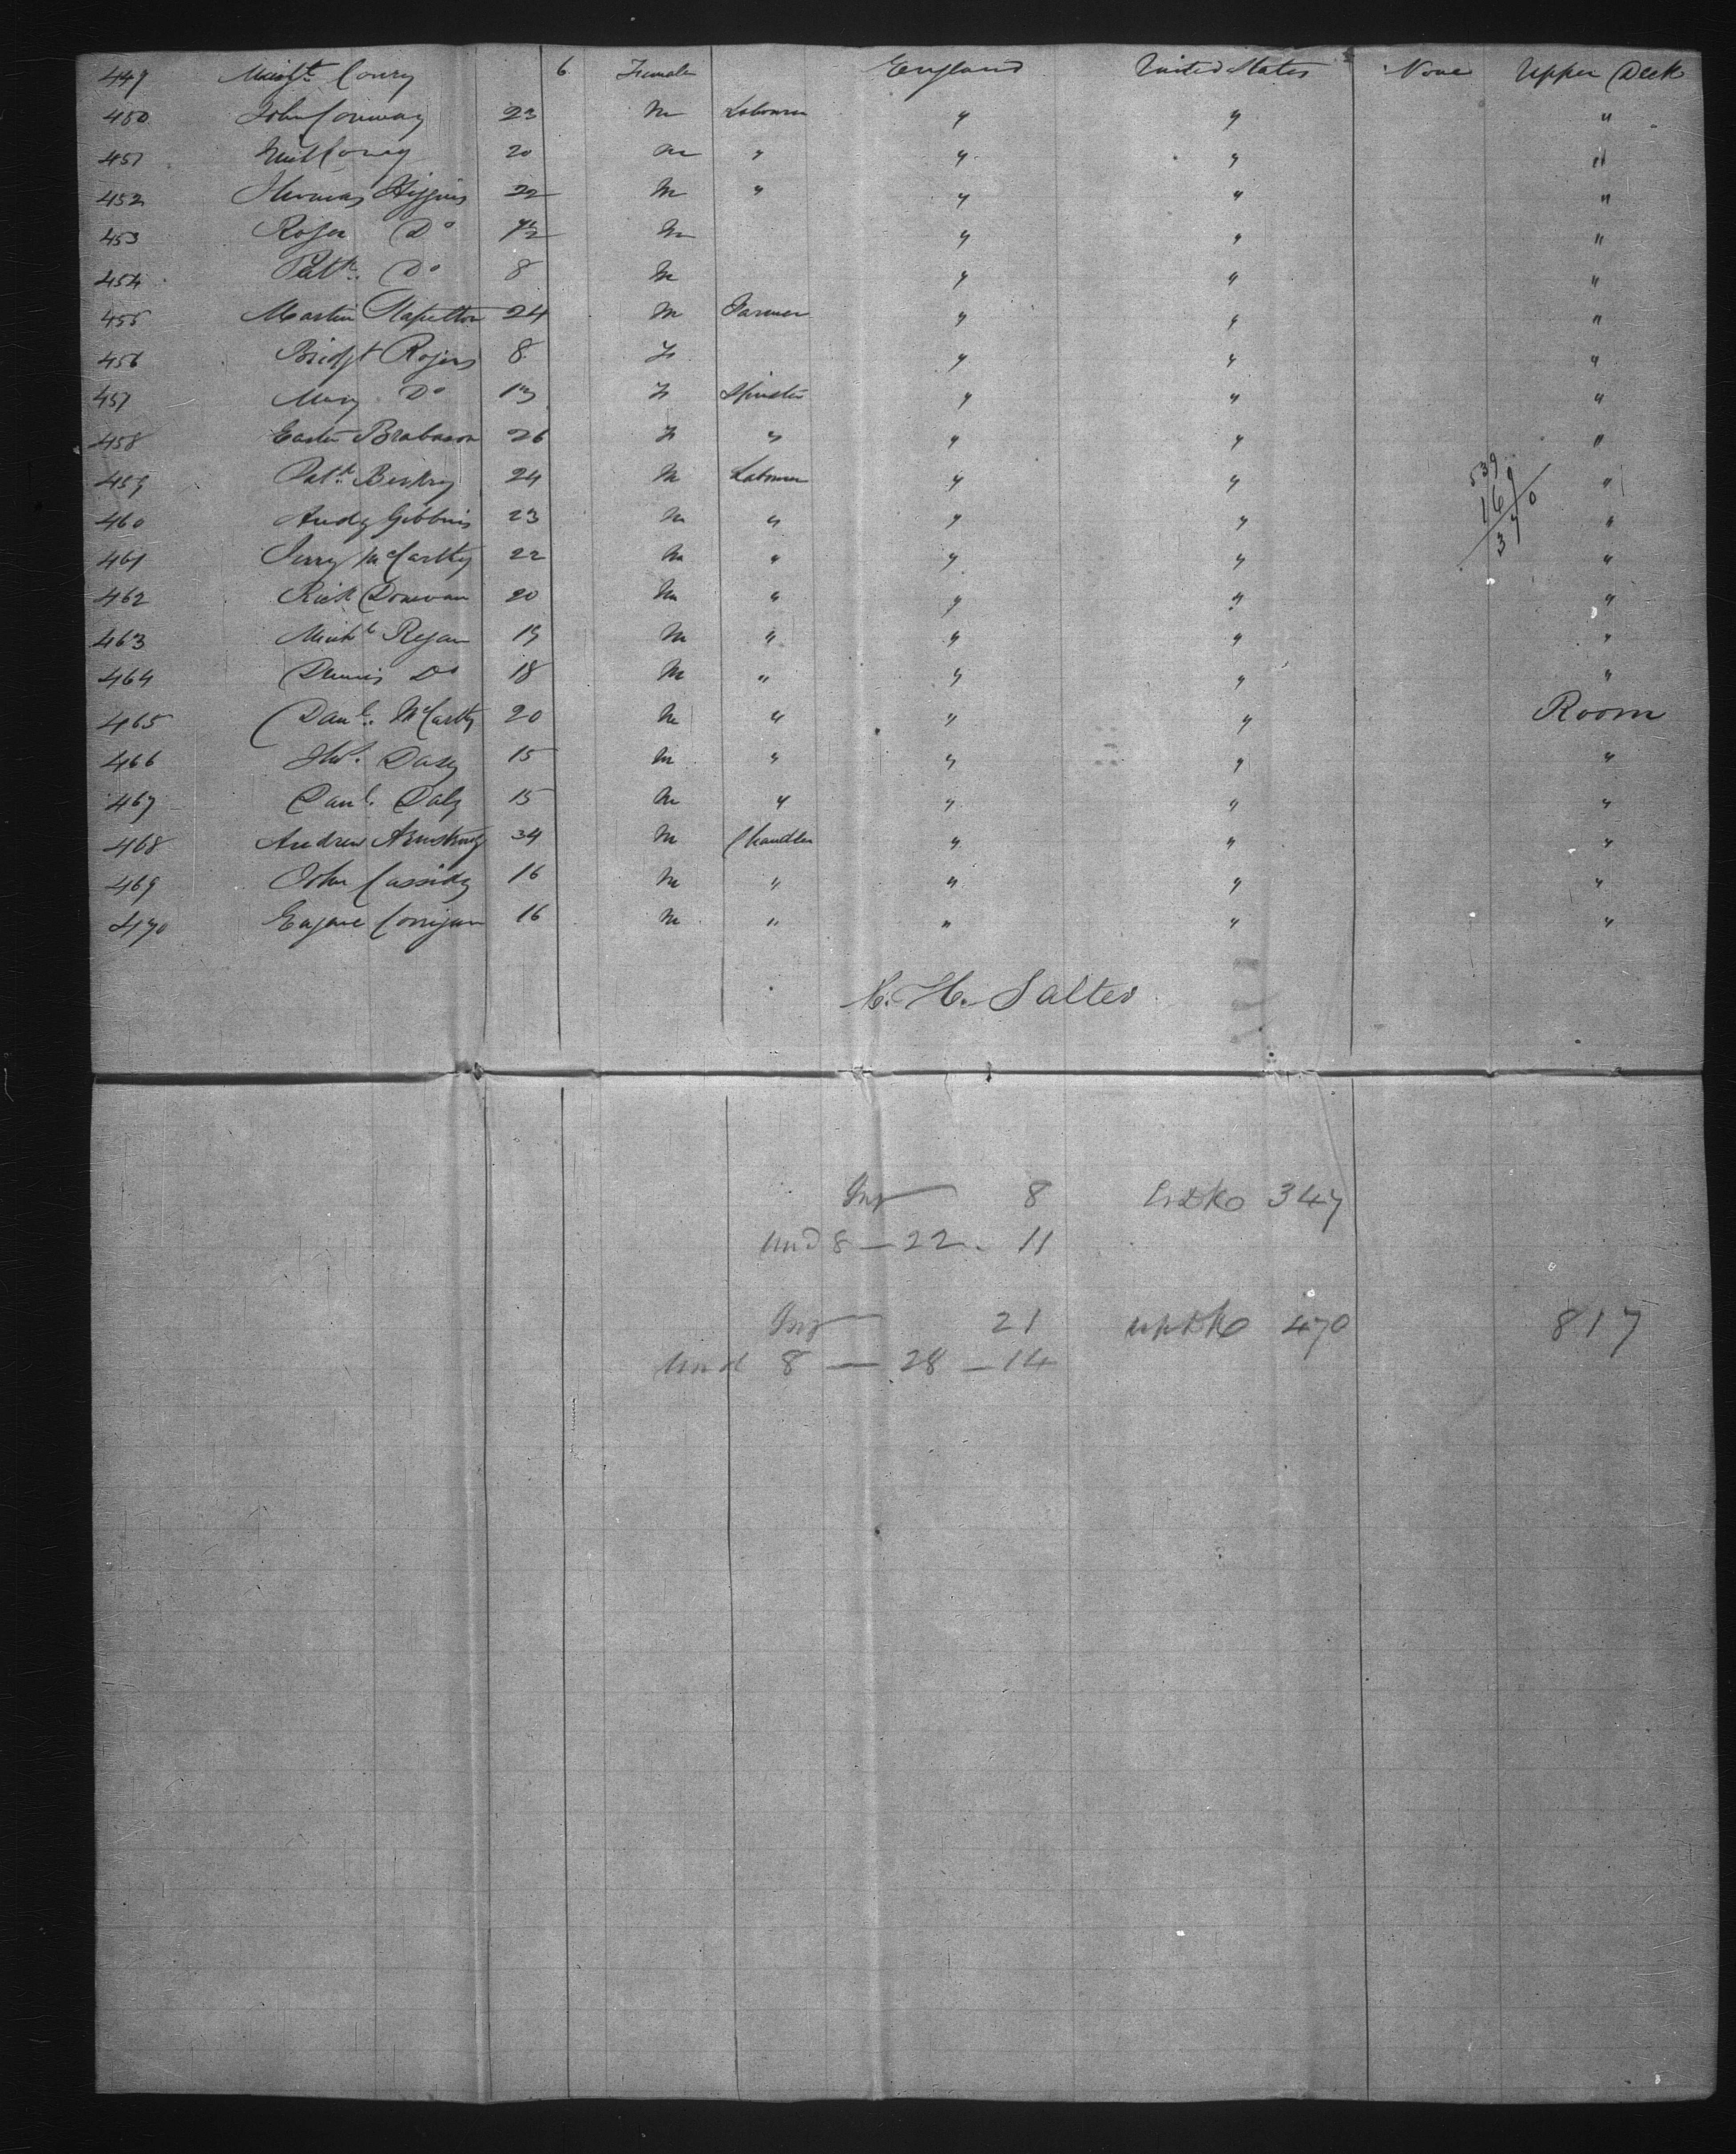 449 Margt Conry 6 Female England United States None Upper Deck
450 John Conway 23 M Labourer " " "
451 20 M " " " "
452 Thomas Higgins 22 M " " " "
453 Roger Do M " " "
454 Patk. Do 8 M " " "
455 Martin Stapelton 24 M Farmer " " "
456 Bridgt Rogers 8 F " " "
457 Mary Do 13 F Spinster " " "
458 Easter Brabason 26 F " " " "
459 Patk. 24 M Labourer " " "
460 Andy Gibbins 23 M " " " "
461 Jerry McCarthy 22 M " " " "
462 Rich Donovan 20 M " " " "
463 Michl Regan 19 M " " " "
464 Dennis Do 18 M " " " "
465 Danl. McCarthy 20 M " " " Room
466 15 M " " " "
467 Danl. Daly 15 M " " " "
468 Andrew Armstrong 34 M Chandler " " "
469 John Cassidy 16 M " " " "
470 Eugene Corrigan 16 M " " " "
539
169
370
C. H. Salter
Inf 8 LrDk 347
und 8 — 22 - 11
Inf 21 upDk 470 817
und 8 — 28 — 14